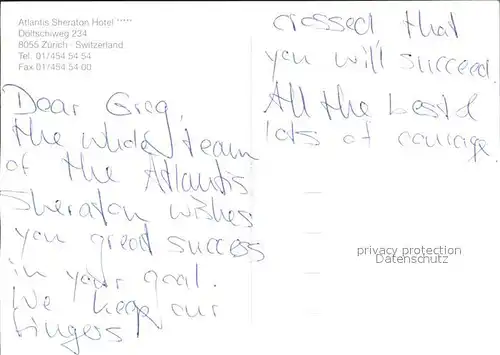 Atlantis Sheraton Hotel *****
Döltschiweg 234
8055 Zürich · Switzerland
Tel. 01/454 54 54
Fax 01/454 54 00
Dear Greg,
the whole team
of the Atlantis
Sheraton wishes
you great success
in your goal.
We keep our
fingers
crossed that
you will succeed.
All the best &
lots of courage.
privacy protection
Datenschutz